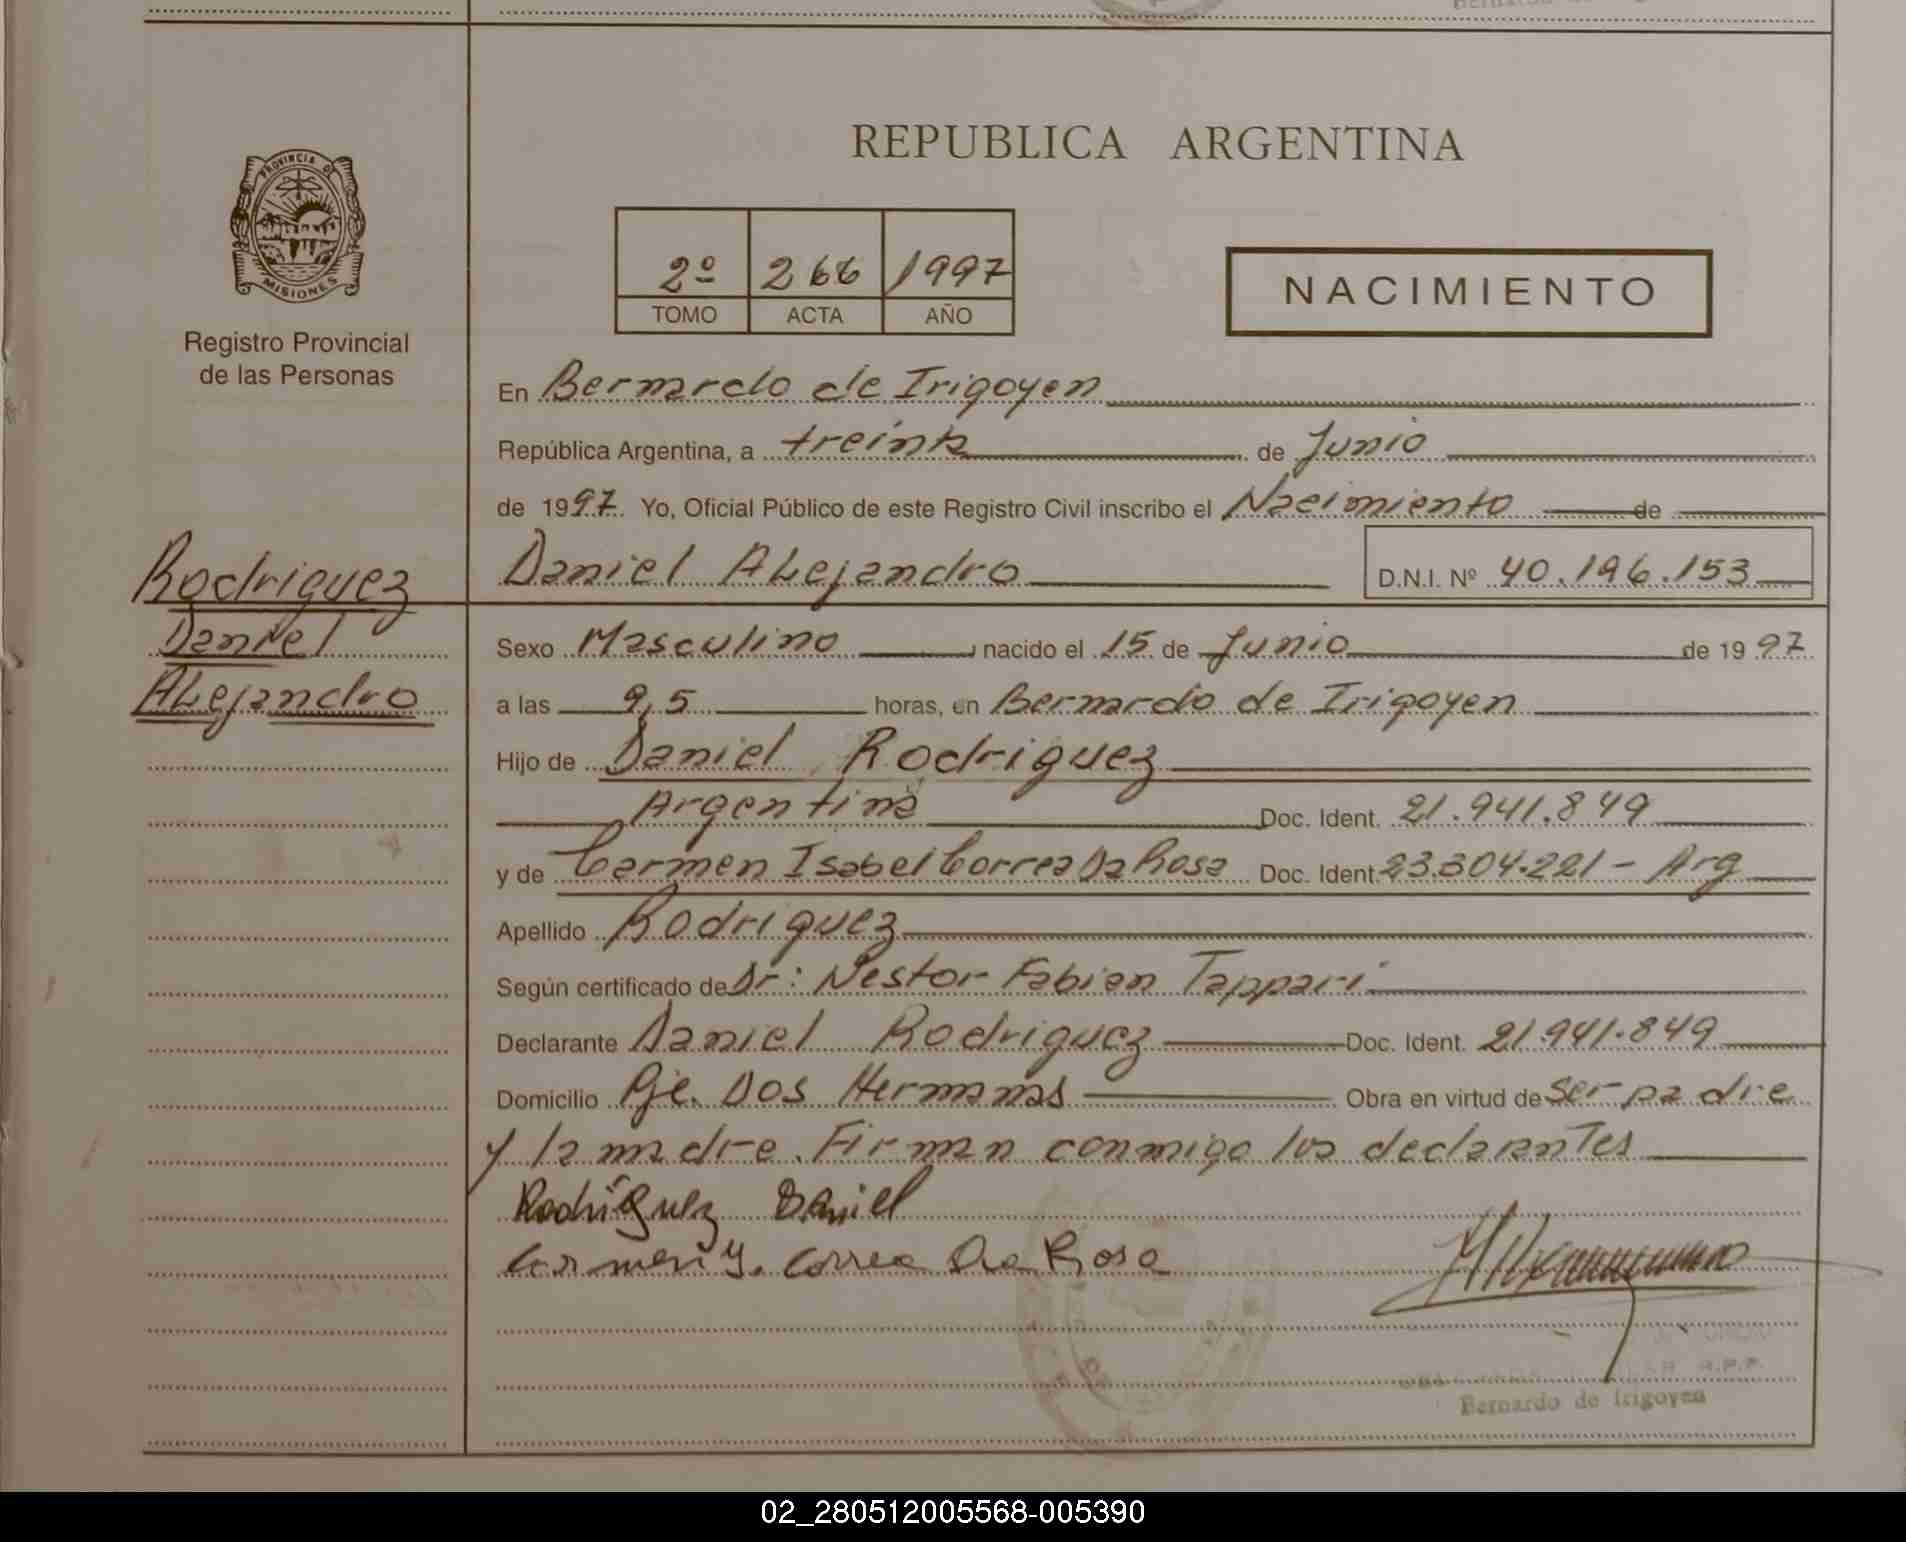 REPUBLICA ARGENTINA
PROVINCIA DE
MISIONES
Registro Provincial
de las Personas
2º 266 1997
TOMO ACTA AÑO
NACIMIENTO
En Bernardo de Irigoyen
República Argentina, a treinta de Junio
de 1997. Yo, Oficial Público de este Registro Civil inscribo el Nacimiento de
Daniel Alejandro D.N.I. Nº 40.196.153
Rodriguez
Daniel
Alejandro
Sexo Masculino, nacido el 15 de Junio de 1997
a las 9,5 horas, en Bernardo de Irigoyen
Hijo de Daniel Rodriguez
Argentina Doc. Ident. 21.941.849
y de Carmen Isabel Correa Da Rosa Doc. Ident. 23.304.221 - Arg
Apellido Rodriguez
Según certificado de Dr: Nestor Fabian Tappari
Declarante Daniel Rodriguez Doc. Ident. 21.941.849
Domicilio Pje. Dos Hermanas Obra en virtud de ser padre
y la madre. Firman conmigo los declarantes
Rodríguez Daniel
Carmen Y. Correa Da Rosa
R.P.P.
Bernardo de Irigoyen
02_280512005568-005390